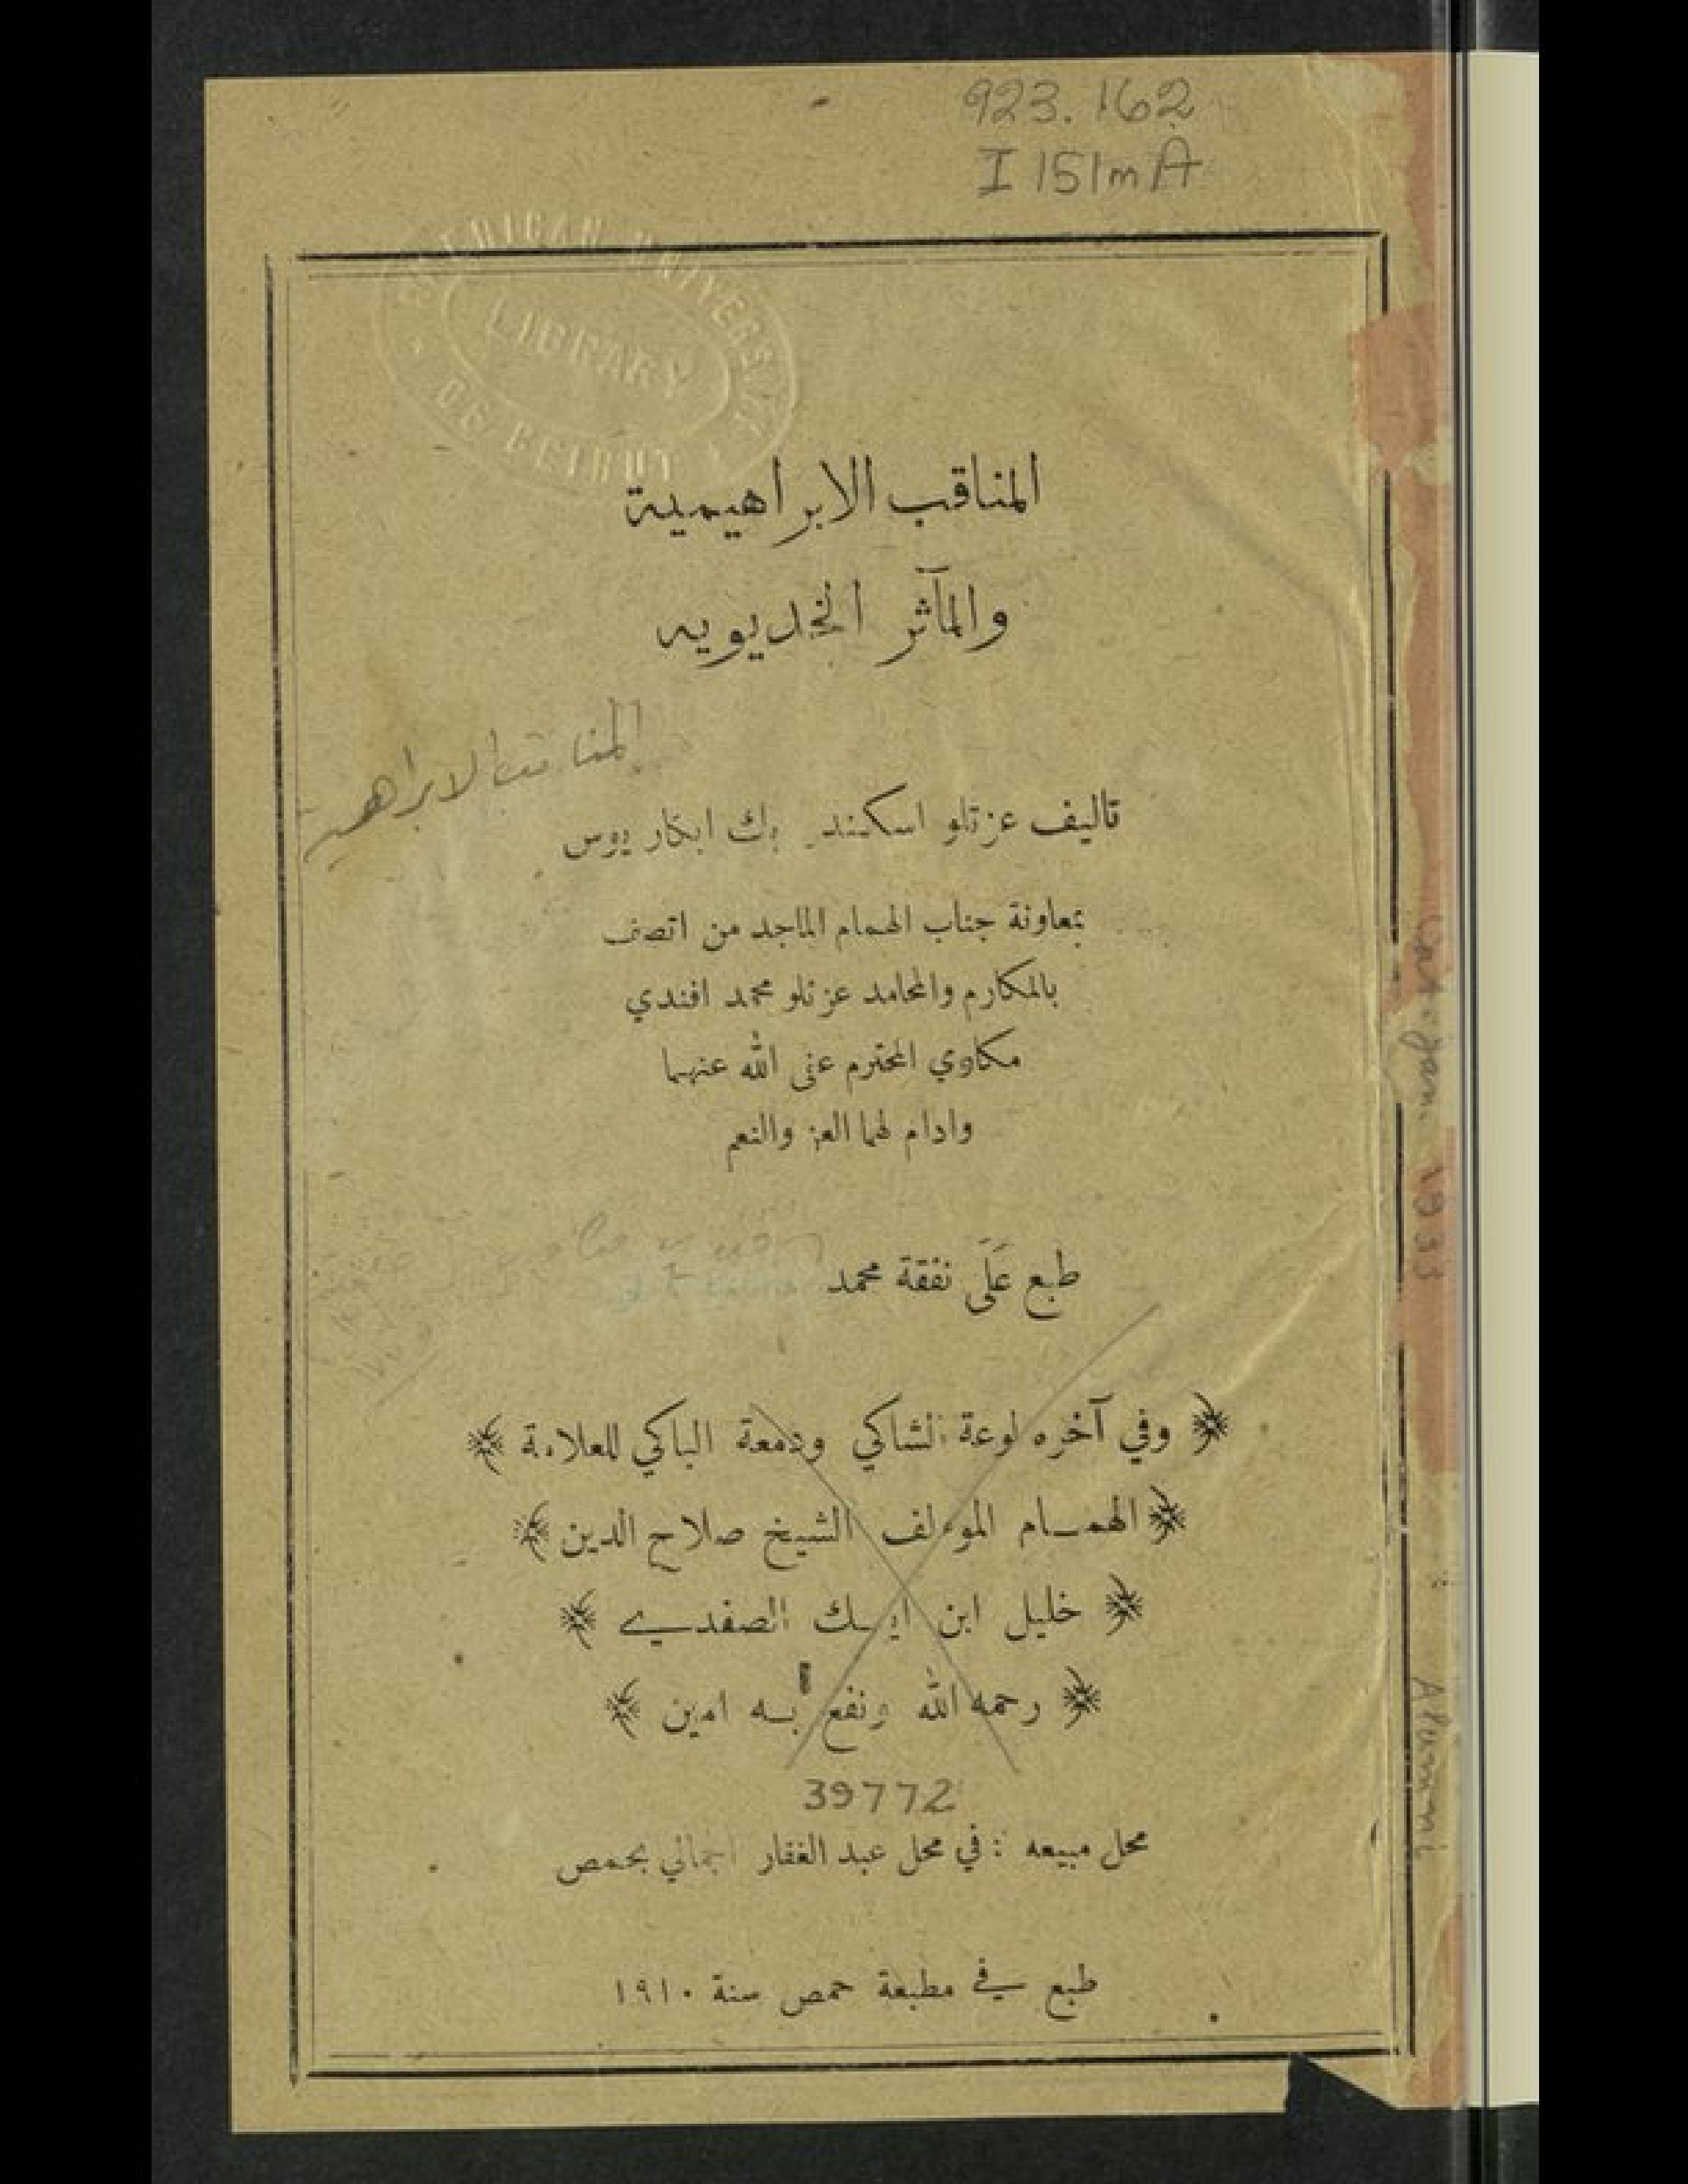 923.162
I 151m A
AMERICAN UNIVERSITY
LIBRARY
OF BEIRUT
المناقب الابراهيمية
والمآثر الخديويه
المناقب الابراهيميه
تاليف عزتلو اسكندر بك ابكاريوس
بمعاونة جناب الهمام الماجد من اتصف
بالمكارم والمحامد عزتلو محمد افندي
مكاوي المحترم عفى الله عنهما
وادام لهما العز والنعم
طبع عَلَى نفقة محمد
وفي آخره لوعة الشاكي ودمعة الباكي للعلامة
الهمـام الموءلف الشيخ صلاح الدين
خليل ابن ايبـك الصفدي
رحمه الله ونفع بـه امين
39772
محل مبيعه : في محل عبد الغفار بحمص
طبع في مطبعة حمص سنة ١٩١٠
Cat. Jan. 1933
Alumni